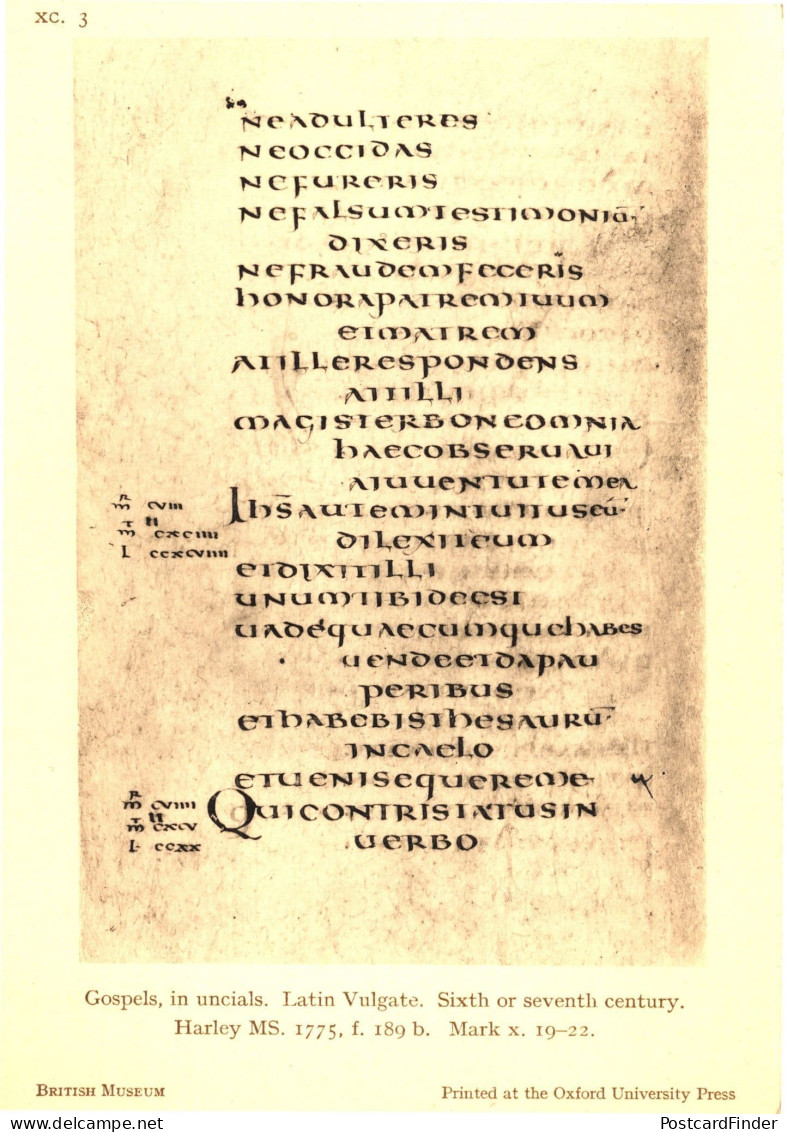 XC. 3
NEADULTERES
NEOCCIDAS
NEFURERIS
NEFALSUMTESTIMONIŪ·
DIXERIS
NEFRAUDEMFECERIS
hONORAPATREMTUUM
ETMATREM
ATILLERESPONDENS
AITILLI
MAGISTERBONEOMNIA
hAECOBSERUAUI
AIUUENTUTEMEA
IhS̄AUTEMINTUITUSEŪ·
DILEXITEUM
ETDIXITILLI
UNUMTIBIDEEST
UADEQUAECUMQUEhABES
UENDEETDAPAU
PERIBUS
EThABEBISThESAURŪ·
INCAELO
ETUENISEQUEREME
QUICONTRISTATUSIN
UERBO
CVIII
CXCIIII
L CCXCVIIII
CVIIII
CXCV
L· CCXX
Gospels, in uncials. Latin Vulgate. Sixth or seventh century.
Harley MS. 1775, f. 189 b. Mark x. 19–22.
BRITISH MUSEUM
Printed at the Oxford University Press
PostcardFinder